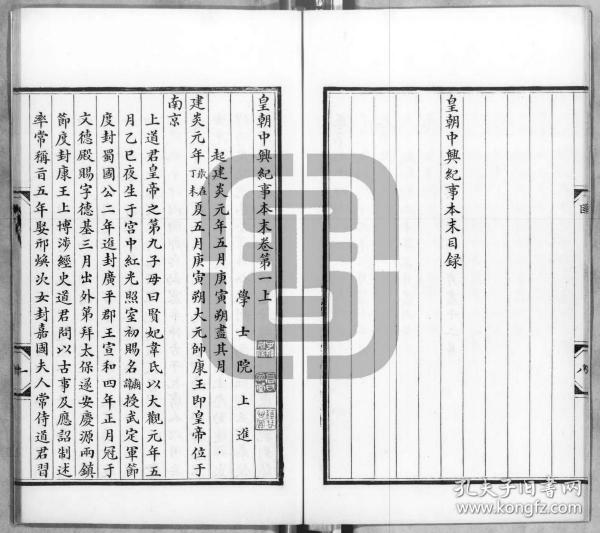 皇朝中興紀事本末目録
皇朝中興紀事本末卷第一上
學士院上進
起建炎元年五月庚寅朔盡其月
建炎元年歲在丁未夏五月庚寅朔大元帥康王即皇帝位于
南京
上道君皇帝之第九子母曰賢妃韋氏以大觀元年五
月乙巳夜生于宫中紅光照室初賜名授武定軍節
度封蜀國公二年進封廣平郡王宣和四年正月冠于
文德殿賜字德基三月出外第拜太保遂安慶源兩鎮
節度封康王上博涉經史道君問以古事及應詔制述
率常稱旨五年娶邢煥次女封嘉國夫人常侍道君習
孔夫子旧书网
www.kongfz.com